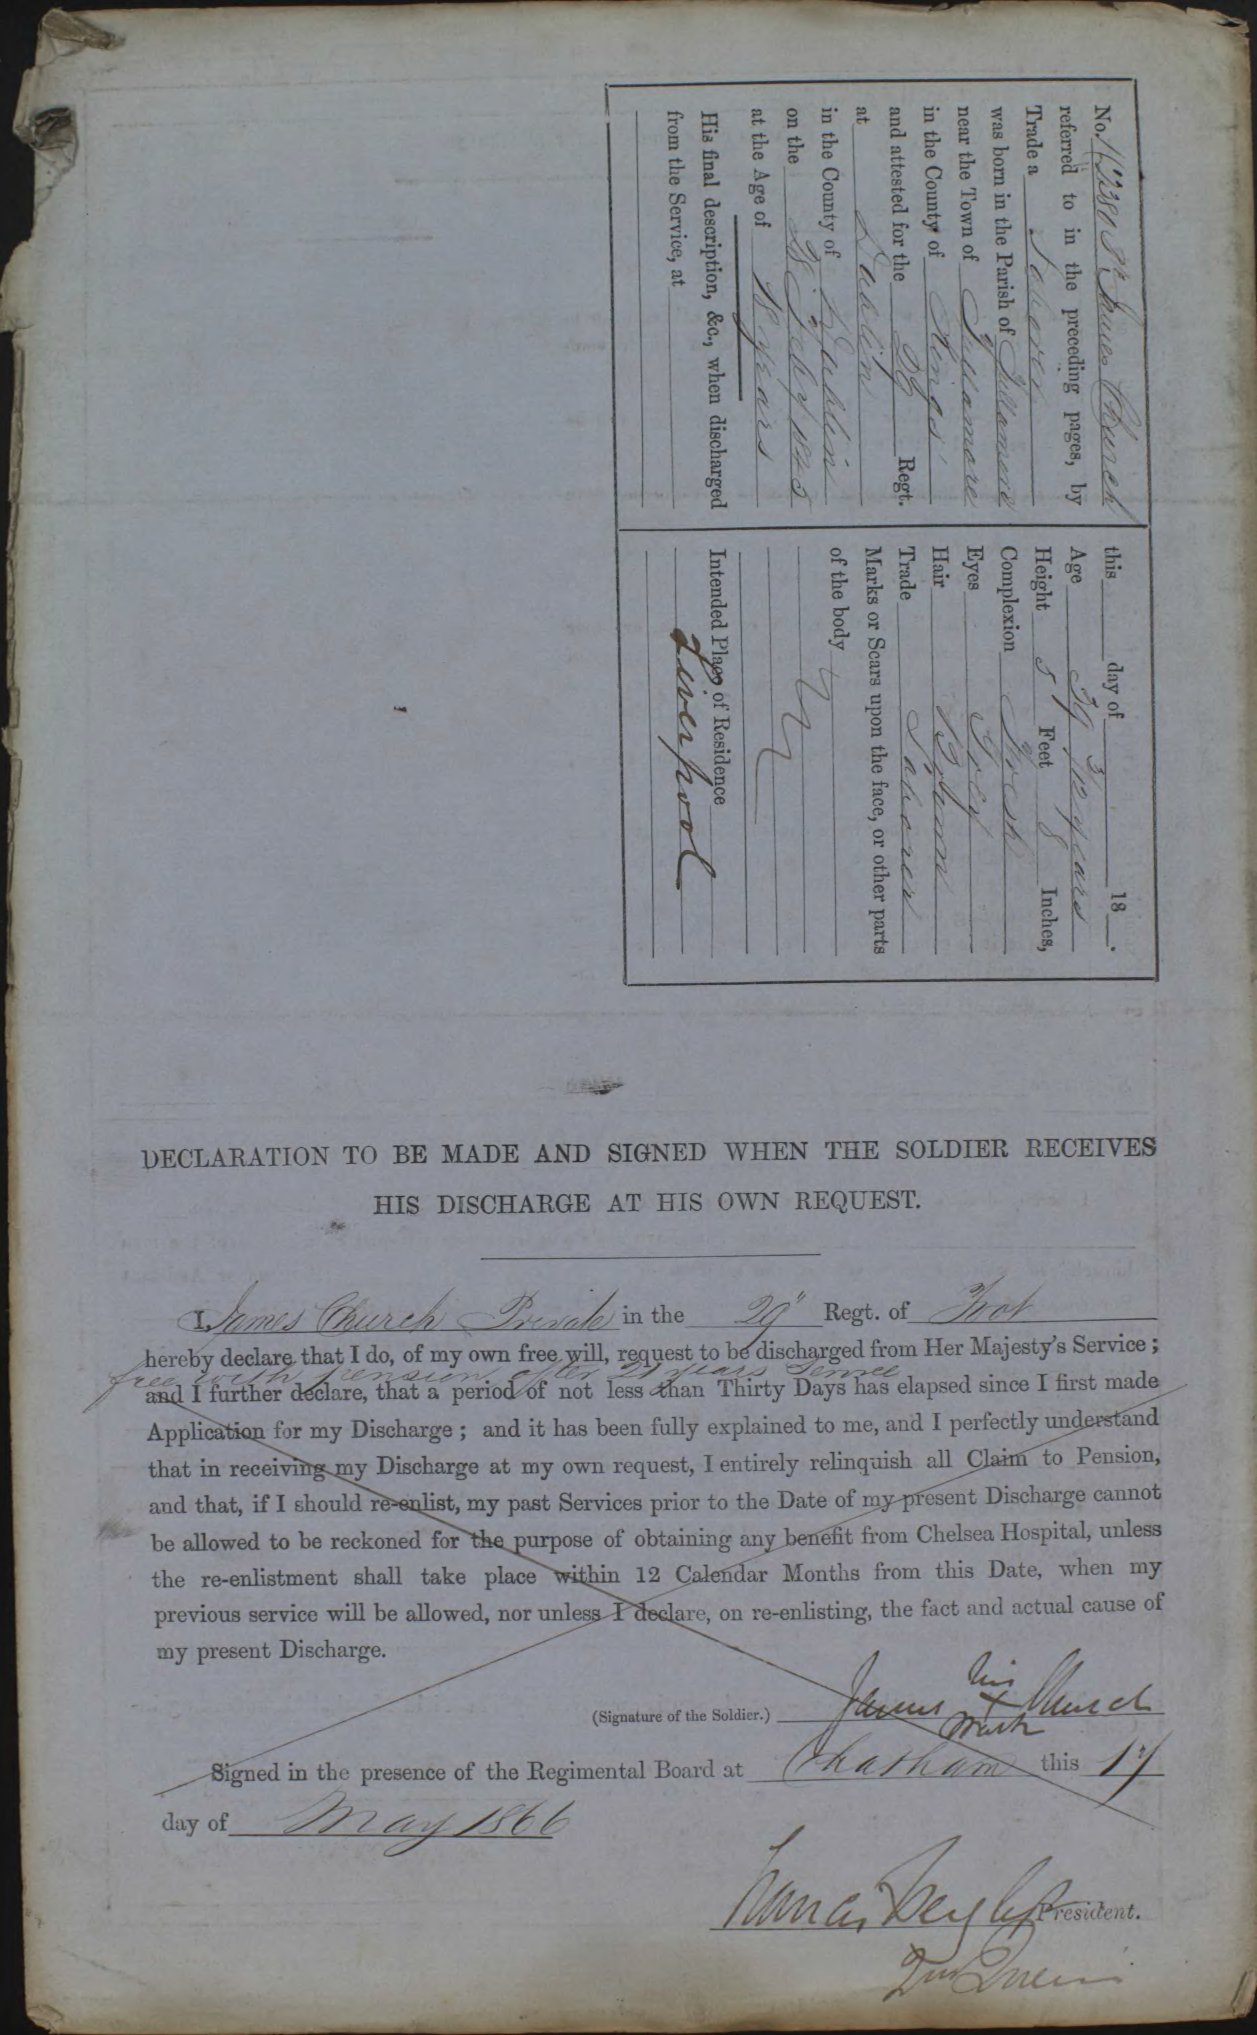 No. 2381 Pte James Church
referred to in the preceding pages, by
Trade a Laborer
was born in the Parish of Tullamore
near the Town of Tullamore
in the County of Kings
and attested for the Regt.
at Dublin
in the County of Dublin
on the July 1845
at the Age of 18 years
His final description, &c., when discharged
from the Service, at
this day of 18 .
Age 39 3/12 years
Height 5 Feet 8 Inches,
Complexion Fresh
Eyes Grey
Hair Brown
Trade Laborer
Marks or Scars upon the face, or other parts
of the body
Intended Place of Residence
Liverpool
DECLARATION TO BE MADE AND SIGNED WHEN THE SOLDIER RECEIVES
HIS DISCHARGE AT HIS OWN REQUEST.
I, James Church Private in the 29" Regt. of Foot
hereby declare that I do, of my own free will, request to be discharged from Her Majesty's Service ;
free with pension after 21 years Service
and I further declare, that a period of not less than Thirty Days has elapsed since I first made
Application for my Discharge ; and it has been fully explained to me, and I perfectly understand
that in receiving my Discharge at my own request, I entirely relinquish all Claim to Pension,
and that, if I should re-enlist, my past Services prior to the Date of my present Discharge cannot
be allowed to be reckoned for the purpose of obtaining any benefit from Chelsea Hospital, unless
the re-enlistment shall take place within 12 Calendar Months from this Date, when my
previous service will be allowed, nor unless I declare, on re-enlisting, the fact and actual cause of
my present Discharge.
his
(Signature of the Soldier.) James X Church
mark
Signed in the presence of the Regimental Board at Chatham this 17
day of May 1866
President.